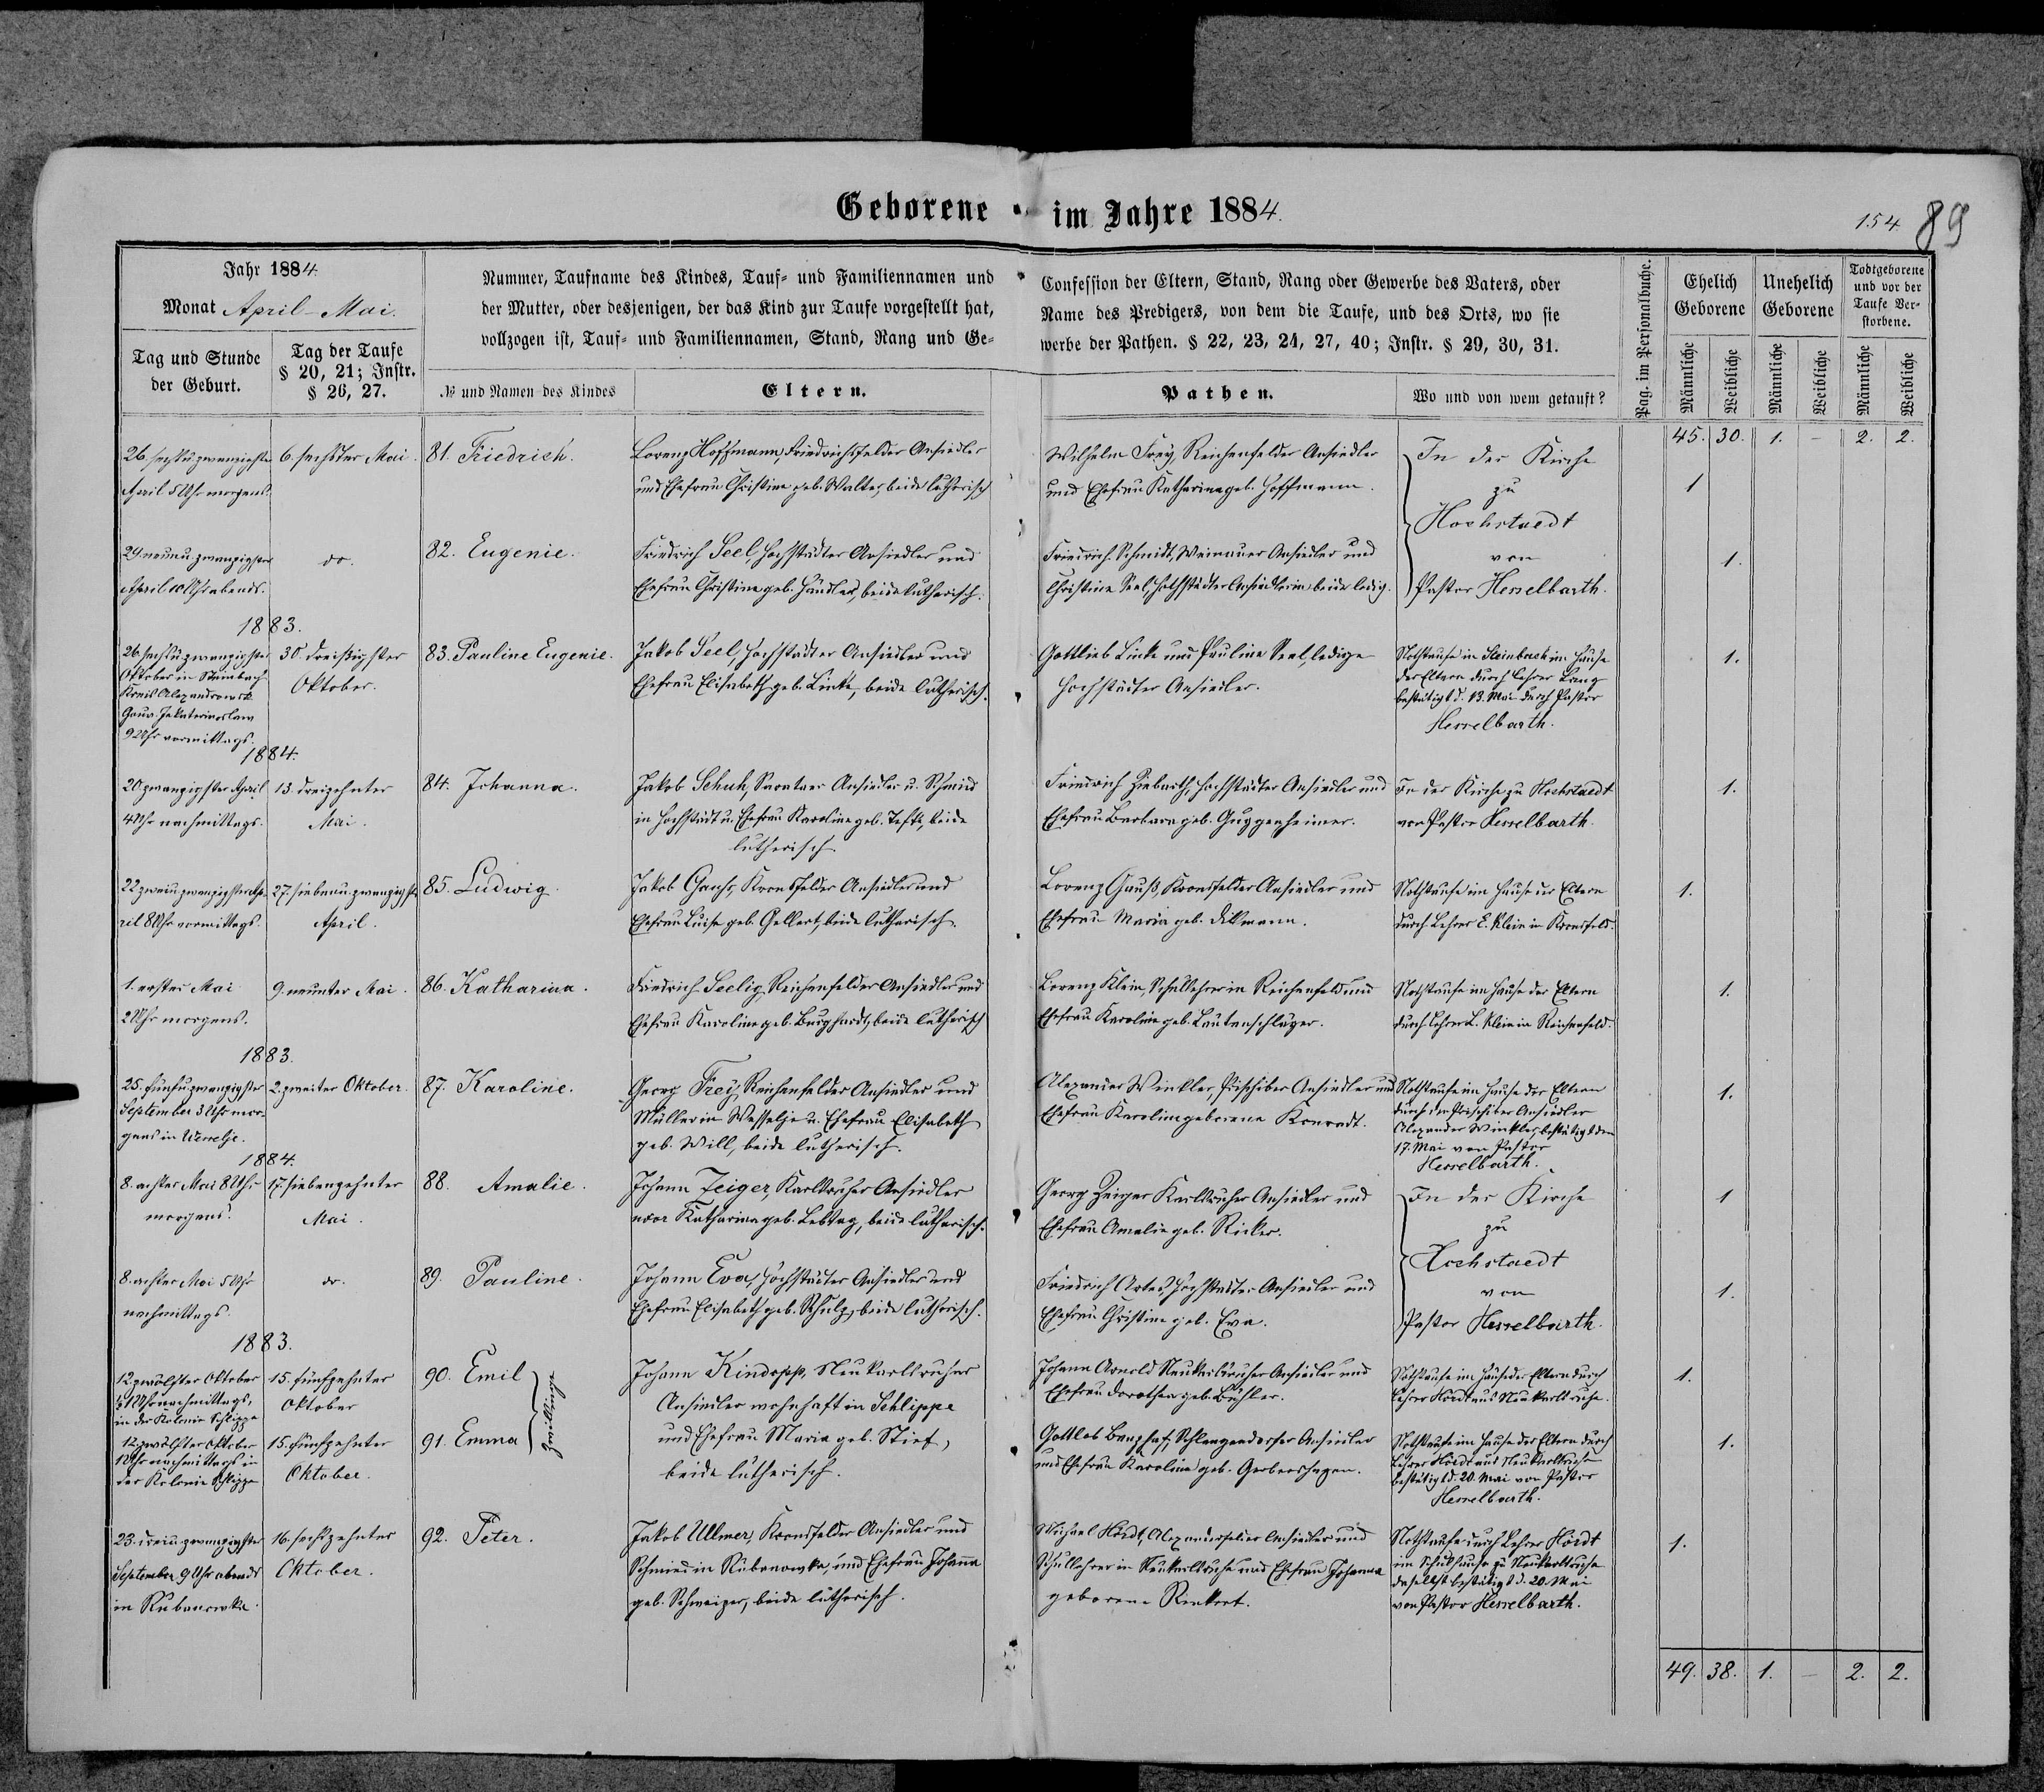 Geborene im Jahre 1884.
154 89
Jahr 1884.
Monat April-Mai.
Tag und Stunde der Geburt.
Tag der Taufe § 20, 21; Instr. § 26, 27.
Nummer, Taufname des Kindes, Tauf- und Familiennamen und
der Mutter, oder desjenigen, der das Kind zur Taufe vorgestellt hat,
vollzogen ist, Tauf- und Familiennamen, Stand, Rang und Ge-
№ und Namen des Kindes
Eltern.
Confession der Eltern, Stand, Rang oder Gewerbe des Vaters, oder
Name des Predigers, von dem die Taufe, und des Orts, wo sie
werbe der Pathen. § 22, 23, 24, 27, 40; Instr. § 29, 30, 31.
Pathen.
Wo und von wem getauft?
Pag. im Personalbuche.
Ehelich Geborene
Unehelich Geborene
Todtgeborene und vor der Taufe Ver-storbene.
Männliche
Weibliche
Männliche
Weibliche
Männliche
Weibliche
45. 30. 1. – 2. 2.
26. sechsu.zwanzigster
April 5 Uhr morgens.
6. sechster Mai.
81. Friedrich.
Lorenz Hoffmann, Friedrichsfelder Ansiedler
und Ehefrau Christine geb. Walter, beide lutherisch
Wilhelm Frey, Reichenfelder Ansiedler
und Ehefrau Katharina geb. Hoffmann.
In der Kirche
zu
Hochstaedt
von
Pastor Hesselbarth.
1
29. neunu.zwanzigster
April 10 Uhr abends.
do.
82. Eugenie.
Friedrich Seel, Hochstädter Ansiedler und
Ehefrau Christine geb. Händler, beide lutherisch.
Friedrich Schmidt, Weinauer Ansiedler und
Christine Seel, Hochstädter Ansiedlerin beide ledig.
1.
1883.
26. sechsu.zwanzigster
Oktober in Steinbach
Kreis Alexandrowsk
Gouv. Jekaterinoslaw
9 Uhr vormittags.
30. dreißigster
Oktober.
83. Pauline Eugenie.
Jakob Seel, Hochstädter Ansiedler und
Ehefrau Elisabeth geb. Linke, beide lutherisch.
Gottlieb Linke und Pauline Seel, ledige
Hochstädter Ansiedler.
Nothtaufe in Steinbach im Hause
der Eltern durch Lehrer Lang
bestätigt d. 13. Mai durch Pastor
Hesselbarth.
1.
1884.
20 zwanzigster April
4 Uhr nachmittags.
13. dreizehnter
Mai.
84. Johanna.
Jakob Schuh, Ansiedler u. Schmied
in Hochstädt u. Ehefrau Karoline geb. beide
lutherisch.
Friedrich Ziebarth, Hochstädter Ansiedler und
Ehefrau Barbara geb. Guggenheimer.
In der Kirche zu Hochstaedt
von Pastor Hesselbarth.
1.
22 zweiu.zwanzigster Ap-
ril 8 Uhr vormittags.
27. siebenu.zwanzigster
April.
85. Ludwig.
Jakob Ganß, Kronsfelder Ansiedler und
Ehefrau Luise geb. Gellert, beide lutherisch.
Lorenz Ganß, Kronsfelder Ansiedler und
Ehefrau Maria geb. Dillmann.
Nothtaufe im Hause der Eltern
durch Lehrer E. Klein in Kronsfeld.
1.
1. erster Mai
2 Uhr morgens.
9. neunter Mai.
86. Katharina.
Friedrich Seelig, Reichenfelder Ansiedler und
Ehefrau Karoline geb. Burghardt, beide lutherisch
Lorenz Klein, Schullehrer in Reichenfeld und
Ehefrau Karoline geb. Lautenschläger.
Nothtaufe im Hause der Eltern
durch Lehrer L. Klein in Reichenfeld.
1.
1883.
25. fünfu.zwanzigster
September 3 Uhr mor-
gens in Wesselje.
2. zweiter Oktober.
87. Karoline.
Georg Frey, Reichenfelder Ansiedler und
Müller in Wesselje u. Ehefrau Elisabeth
geb. Will, beide lutherisch.
Alexander Winkler, Prischiber Ansiedler und
Ehefrau Karoline geborene Konradt.
Nothtaufe im Hause der Eltern
durch den Prischiber Ansiedler
Alexander Winkler, bestätigt den
17. Mai von Pastor
Hesselbarth.
1.
1884.
8. achter Mai 8 Uhr
morgens.
17. siebenzehnter
Mai.
88. Amalie.
Johann Zeiger, Karlsruher Ansiedler
und Katharina geb. Lebtag, beide lutherisch.
Georg Zeiger Karlsruher Ansiedler und
Ehefrau Amalie geb. Ricker.
In der Kirche
zu
Hochstaedt
von
Pastor Hesselbarth.
1
8. achter Mai 5 Uhr
nachmittags.
do.
89. Pauline.
Johann Eva, Hochstädter Ansiedler und
Ehefrau Elisabeth geb. Schulz, beide lutherisch.
Friedrich Hochstädter Ansiedler und
Ehefrau Christine geb. Eva.
1.
1883.
12. zwölfter Oktober
½1 Uhr nachmittags,
in der Kolonie Schlippe
15. fünfzehnter
Oktober
90. Emil
Zwillinge
Johann Kindopp, Neukarlsruher
Ansiedler wohnhaft in Schlippe
und Ehefrau Maria geb. Stief,
beide lutherisch.
Johann Arnold Neukarlsruher Ansiedler und
Ehefrau Dorothea geb. Bühler.
Nothtaufe im Hause der Eltern durch
Lehrer Hördt aus Neukarlsruhe.
1.
12. zwölfter Oktober
1 Uhr nachmittags in
der Kolonie Schlippe
15. fünfzehnter
Oktober.
91. Emma
Gottlob Schlangendorfer Ansiedler
und Ehefrau Karoline geb. Gerbershagen.
Nothtaufe im Hause der Eltern durch
Lehrer Hördt aus Neukarlsruhe
bestätigt d. 20. Mai von Pastor
Hesselbarth.
1.
23. dreiu.zwanzigster
September 9 Uhr abends
in Rubanowka.
16. sechzehnter
Oktober.
92. Peter.
Jakob Ullmer, Kronsfelder Ansiedler und
Schmied in Rubanowka, und Ehefrau Johanna
geb. Schweizer, beide lutherisch.
Michael Hördt, Ansiedler und
Schullehrer in Neukarlsruhe und Ehefrau Johanna
geborene Renkert.
Nothtaufe durch Lehrer Hördt
im Schulhause zu Neukarlsruhe
daselbst bestätigt d. 20. Mai
von Pastor Hesselbarth.
1.
49. 38. 1. – 2. 2.